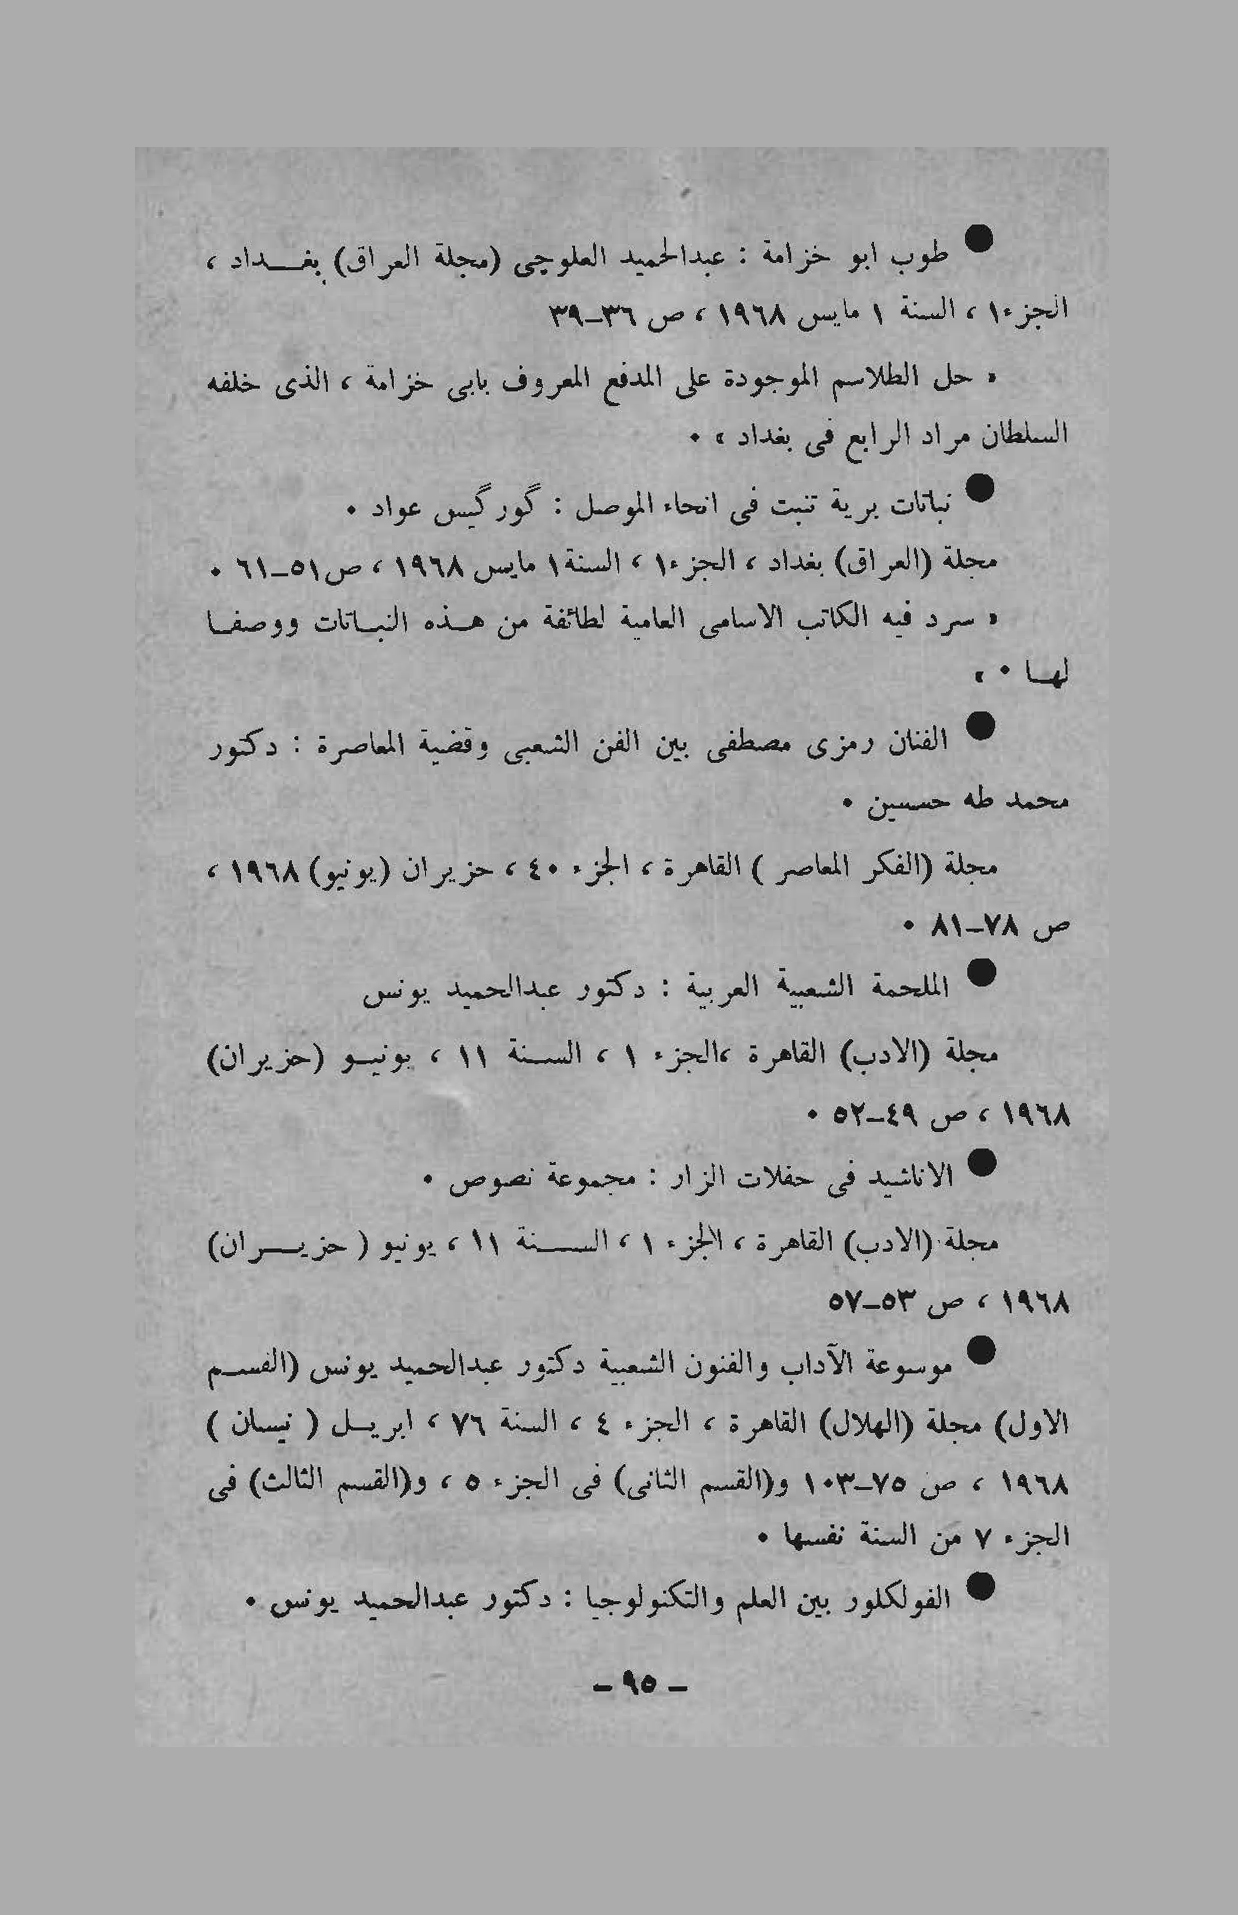 ● طوب ابو خزامة : عبدالحميد العلوچى (مجلة العراق) بغـــداد ،
الجزء١ ، السنة ١ مايس ١٩٦٨ ، ص ٣٦ـ٣٩
« حل الطلاسم الموجودة على المدفع المعروف بابى خزامة ، الذى خلفه
السلطان مراد الرابع فى بغداد » ٠
● نباتات برية تنبت فى انحاء الموصل : گورگيس عواد ٠
مجلة (العراق) بغداد ، الجزء١ ، السنة١ مايس ١٩٦٨ ، ص٥١ـ٦١ ٠
« سرد فيه الكاتب الاسامى العامية لطائفة من هـذه النبـاتات ووصفـا
لهـا ٠ »
● الفنان رمزى مصطفى بين الفن الشعبى وقضية المعاصرة : دكتور
محمد طه حسين ٠
مجلة (الفكر المعاصر ) القاهرة ، الجزء ٤٠ ، حزيران (يونيو) ١٩٦٨ ،
ص ٧٨ـ٨١ ٠
● الملحمة الشعبية العربية : دكتور عبدالحميد يونس
مجلة (الادب) القاهرة ،الجزء ١ ، السـنة ١١ ، يونيـو (حزيران)
١٩٦٨ ، ص ٤٩ـ٥٢ ٠
● الاناشيد فى حفلات الزار : مجموعة نصوص ٠
مجلة (الادب) القاهرة ، الجزء ١ ، الســـنة ١١ ، يونيو ( حزيـــران)
١٩٦٨ ، ص ٥٣ـ٥٧
● موسوعة الآداب والفنون الشعبية دكتور عبدالحميد يونس (القســم
الاول) مجلة (الهلال) القاهرة ، الجزء ٤ ، السنة ٧٦ ، ابريـل ( نيسان )
١٩٦٨ ، ص ٧٥ـ١٠٣ و(القسم الثانى) فى الجزء ٥ ، و(القسم الثالث) فى
الجزء ٧ من السنة نفسها ٠
● الفولكلور بين العلم والتكنولوجيا : دكتور عبدالحميد يونس ٠
ـ ٩٥ ـ